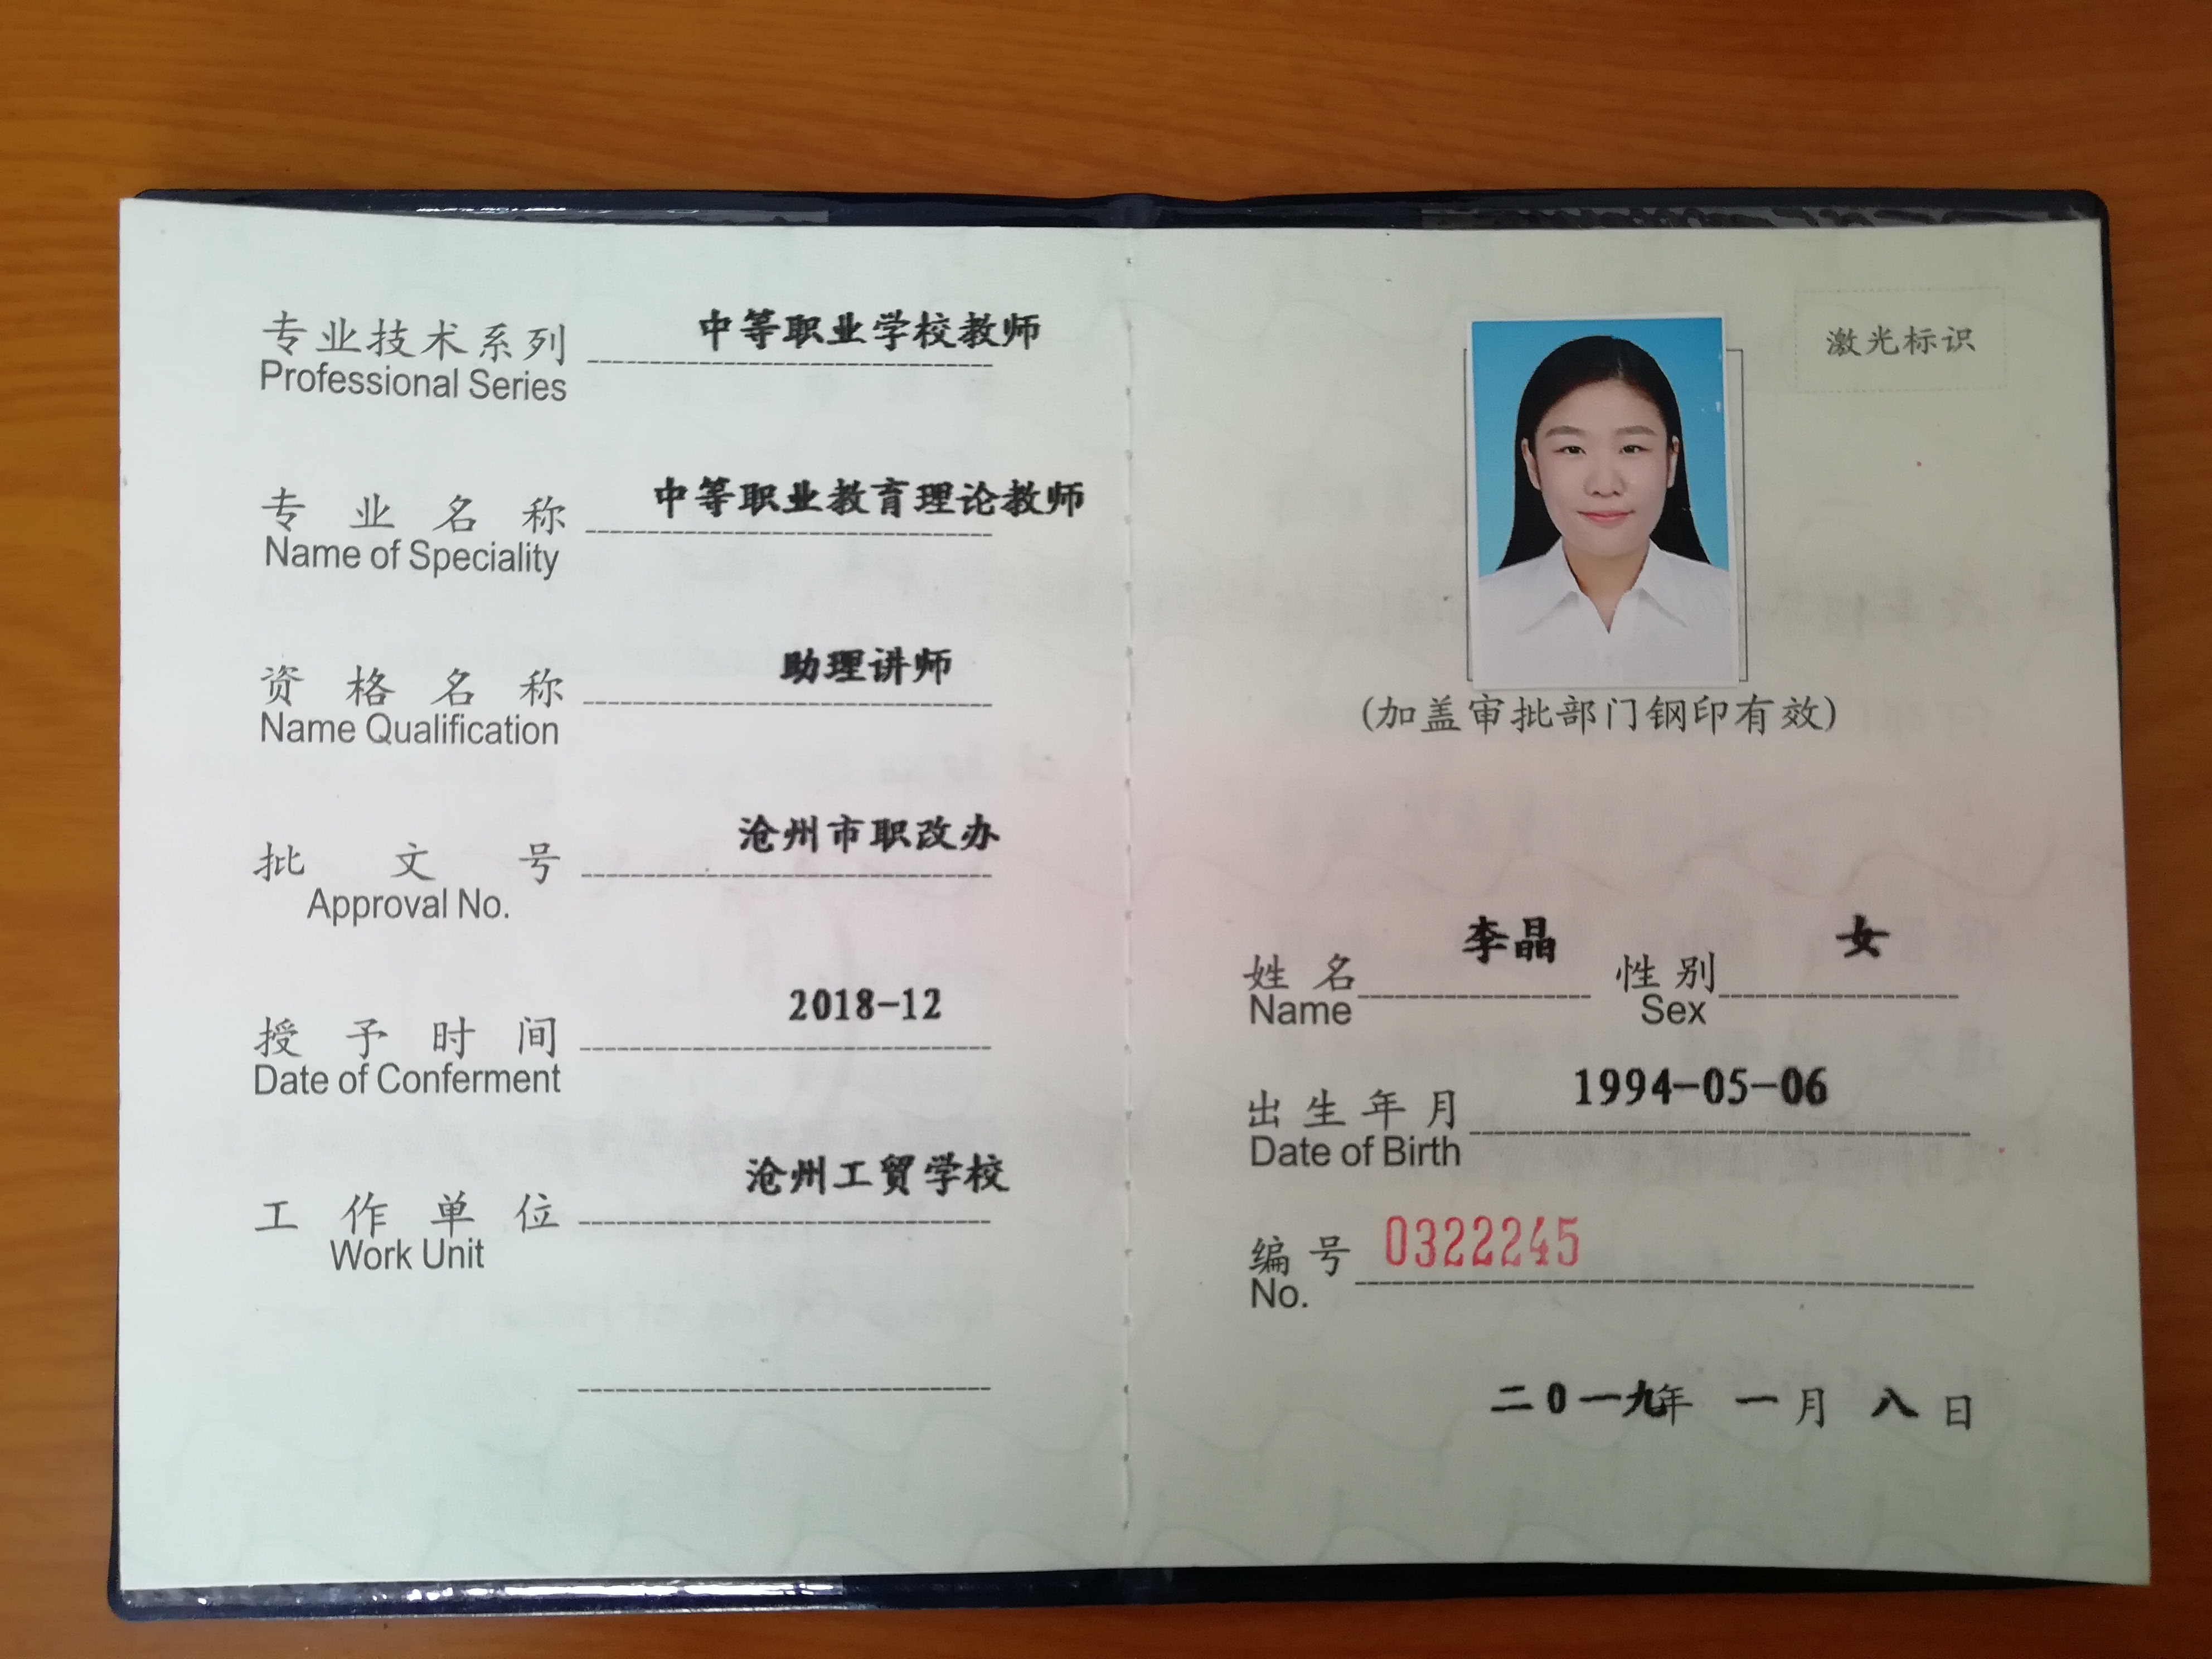 专业技术系列 中等职业学校教师
Professional Series
专业名称 中等职业教育理论教师
Name of Speciality
资格名称 助理讲师
Name Qualification
批文号 沧州市职改办
Approval No.
授予时间 2018-12
Date of Conferment
工作单位 沧州工贸学校
Work Unit
激光标识
(加盖审批部门钢印有效)
姓名 李晶 性别 女
Name Sex
出生年月 1994-05-06
Date of Birth
编号 0322245
No.
二0一九年 一月 八日